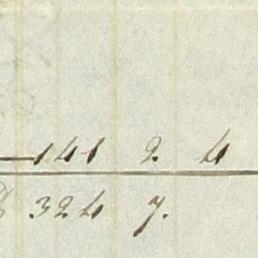 141 2. 4
324 7.